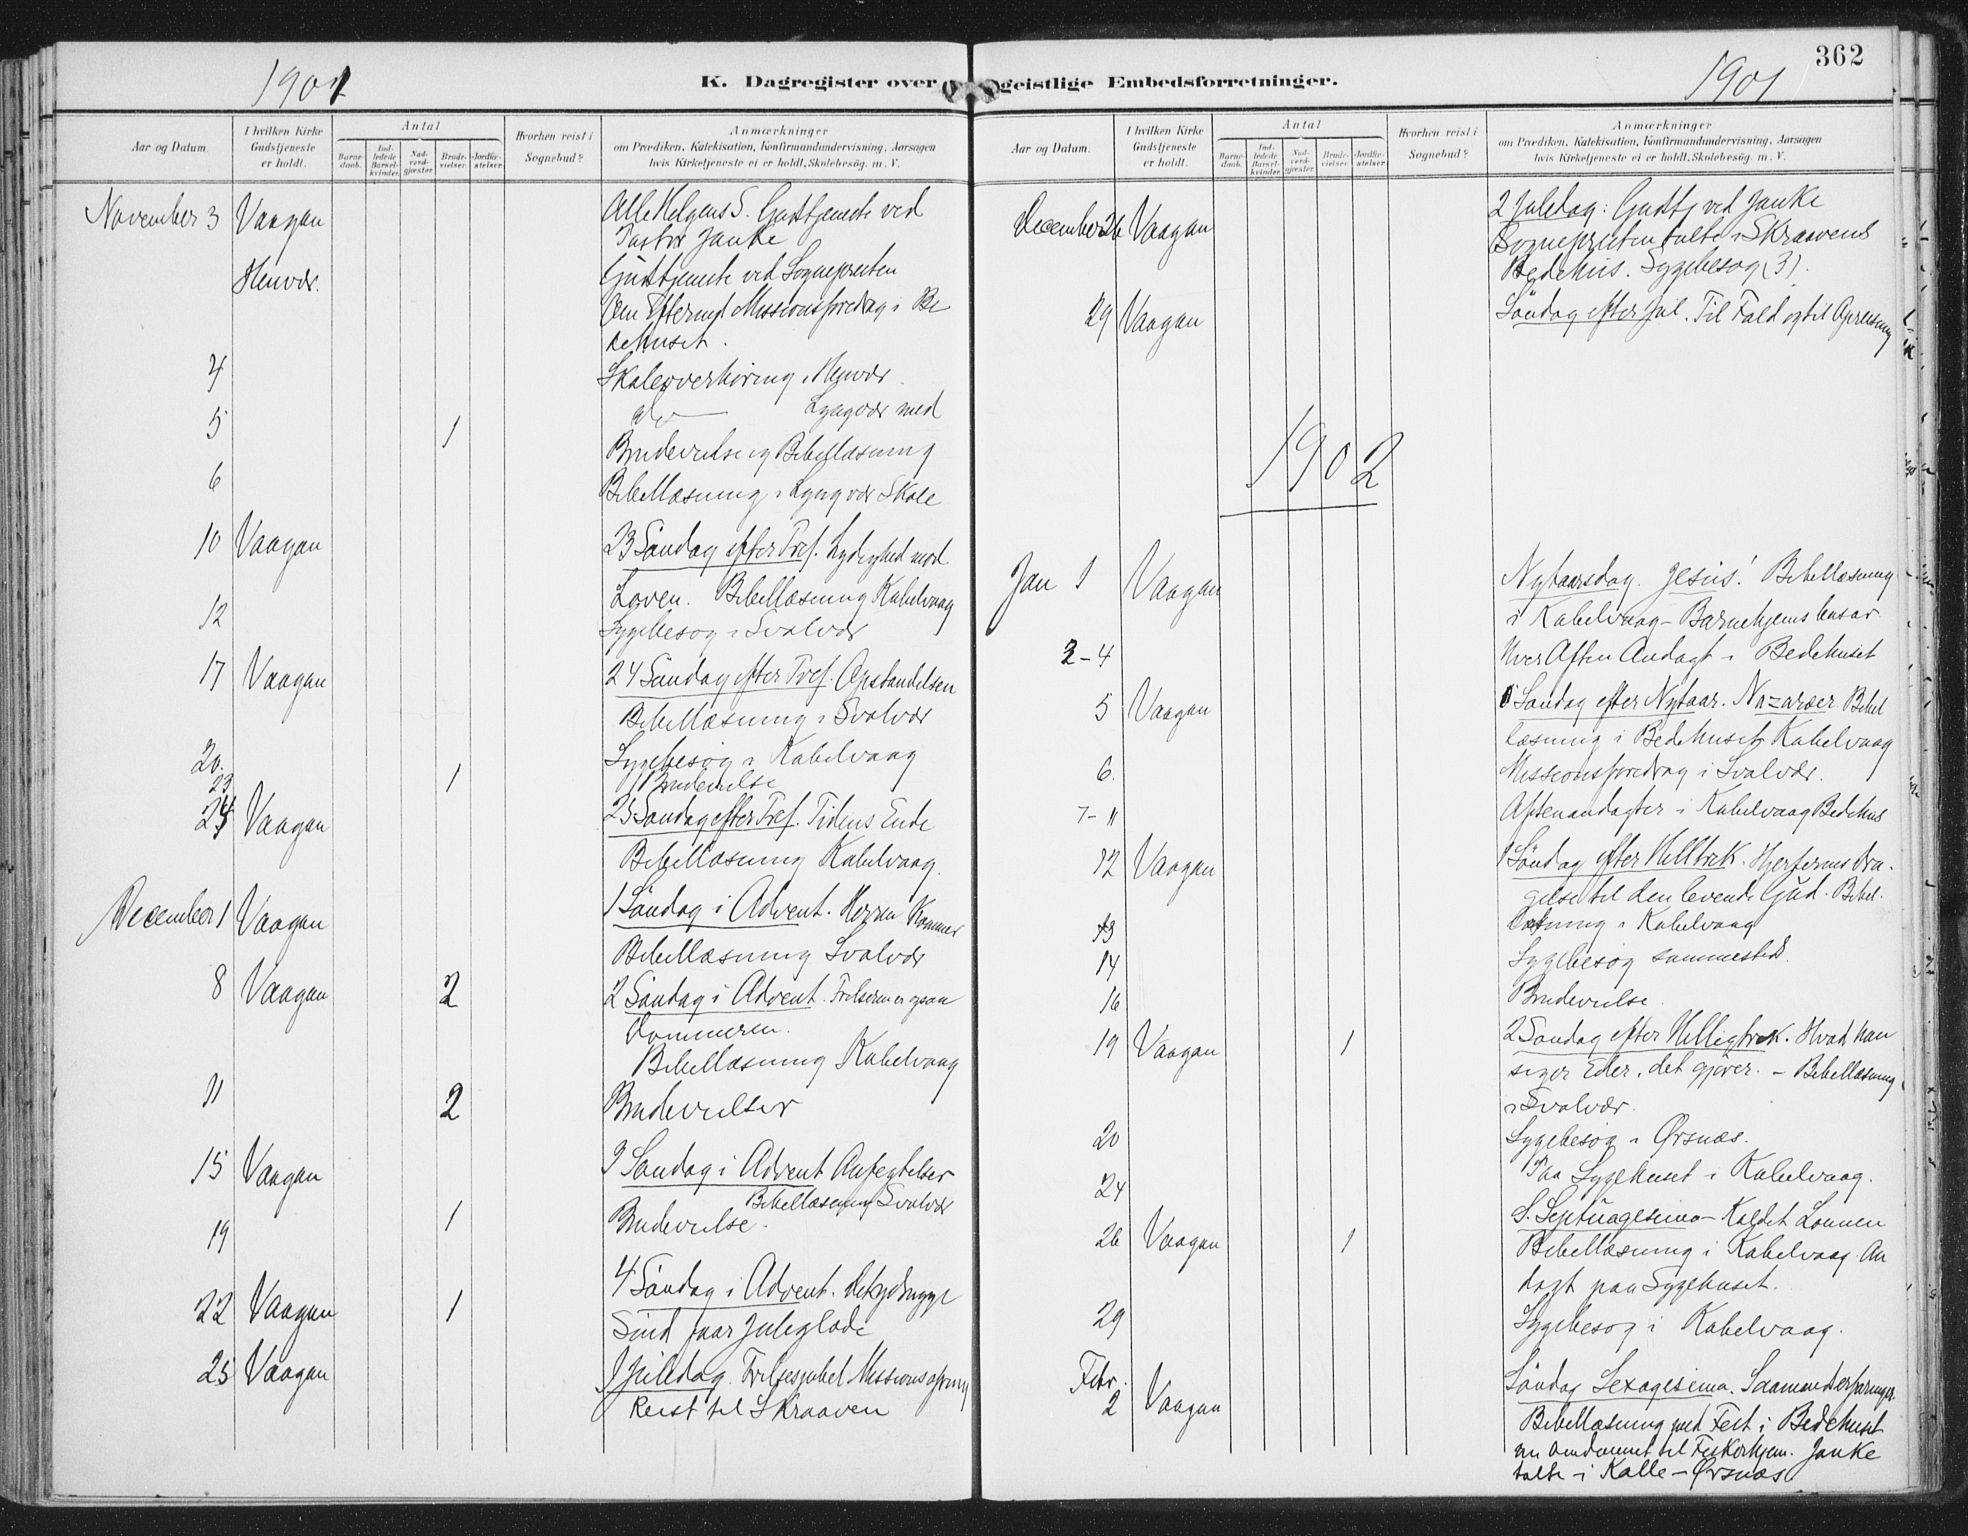 362
1901
K. Dagregister over geistlige Embedsforretninger.
1901
Aar og Datum.
I hvilken Kirke Gudstjeneste er holdt.
Antal
Barnedaab.
Indledede Barselkvinder.
Nadverdgjæster.
Brudevielser.
Jordfæstelser.
Hvorhen reist i Sognebud?
Anmærkninger
om Prædiken, Katekisation, Konfirmandundervisning, Aarsagen
hvis Kirketjeneste ei er holdt, Skolebesøg. m. V.
November 3 Vaagan Alle Helgens S. Gudstjeneste ved
Pastor Janke
Henvær. Gudstjeneste ved Sognepresten
Om Efterm. Missionsforedrag i Be
dehuset.
4 Skoleoverhøring i Henvær
5 1 do Lyngvær med
Brudevielse og Bibellæsning
6 Bibellæsning i Lyngvær Skole
10 Vaagan 23 Søndag efter Tref. Lydighed mod
Loven. Bibellæsning Kabelvaag
12 Sygebesøg i Svolvær
17 Vaagan 24 Søndag efter Tref. Opstandelsen
Bibellæsning i Svolvær
20. Sygebesøg i Kabelvaag
23 1 Brudevielse
24 Vaagan 25 Søndag efter Tref. Tidens Ende
Bibellæsning Kabelvaag.
December 1 Vaagan 1 Søndag i Advent. Herren Kommer
Bibellæsning Svolvær
8 Vaagan 2 2 Søndag i Advent. Frelseren er ogsaa
Dommeren.
Bibellæsning Kabelvaag
11 2 Brudevielser
15 Vaagan 3 Søndag i Advent Anfegtelser
Bibellæsning Svolvær
19 1 Brudevielse.
22 Vaagan 1 4 Søndag i Advent.
Sind faar Juleglæde
25 Vaagan 1 Juledag. Frelsesjubel
Reist til Skraaven
Aar og Datum.
I hvilken Kirke Gudstjeneste er holdt.
Antal
Barnedaab.
Indledede Barselkvinder.
Nadverdgjæster.
Brudevielser.
Jordfæstelser.
Hvorhen reist i Sognebud?
Anmærkninger
om Prædiken, Katekisation, Konfirmandundervisning, Aarsagen
hvis Kirketjeneste ei er holdt, Skolebesøg. m. V.
December 26 Vaagan 2 Juledag: Gudstj ved Janke
Sognepresten talte i Skraavens
Bedehus. Sygebesøg (3).
29 Vaagan Søndag efter Jul. Til Fald og til Opreisning
1902
Jan 1 Vaagan Nytaarsdag. Jesus! Bibellæsning
i Kabelvaag – Barnehjemsbasar
2-4 Hver Aften Andagt i Bedehuset
5 Vaagan Søndag efter Nytaar. Nazaræer. Bibel
læsning i Bedehuset Kabelvaag
6. Missionsforedrag i Svolvær.
7-11 Aftenandagter i Kabelvaag Bedehus
12 Vaagan 1 Søndag efter Helltrek. Hjerternes Dra
gelse til den levende Gud. Bibel.
læsning i Kabelvaag
13
14 Sygebesøg sammesteds.
16 Brudevielse.
19 Vaagan 1 2 Søndag efter Helligtrek. Hvad han
siger Eder, det gjører. – Bibellæsning
i Svolvær.
20 Sygebesøg i Ørsnæs.
24 Paa Sygehuset i Kabelvaag.
26 Vaagan 1 S. Septuagesima – Kaldet Lønnen
Bibellæsning i Kabelvaag. An
dagt paa Sygehuset.
29 Sygebesøg i Kabelvaag.
Febr.
2 Vaagan Søndag Sexagesima. Saamandserfaringer.
Bibellæsning med Fest i Bedehuset
nu omdannet til Fiskerhjem. Janke
talte i Kalle – Ørsnæs